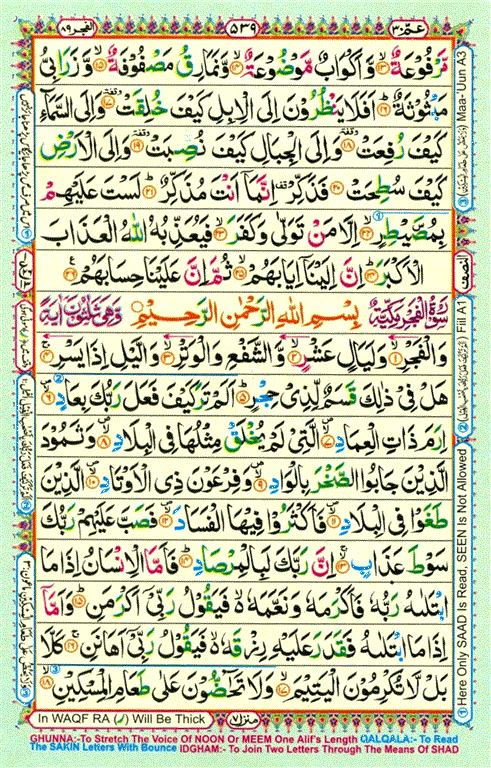 عمّ ٣٠
٥٣٩
الفجر ٨٩
مَّرْفُوْعَةٌ ۙ﴿۱۳﴾ وَّاَكْوَابٌ مَّوْضُوْعَةٌ ۙ﴿۱۴﴾ وَّنَمَارِقُ مَصْفُوْفَةٌ ۙ﴿۱۵﴾ وَّزَرَابِیُّ
مَبْثُوْثَةٌ ؕ﴿۱۶﴾ اَفَلَا یَنْظُرُوْنَ اِلَی الْاِبِلِ كَیْفَ خُلِقَتْ ﴿۱۷﴾ وَاِلَی السَّمَآءِ
كَیْفَ رُفِعَتْ ﴿۱۸﴾ وَاِلَی الْجِبَالِ كَیْفَ نُصِبَتْ ﴿۱۹﴾ وَاِلَی الْاَرْضِ
كَیْفَ سُطِحَتْ ﴿۲۰﴾ فَذَكِّرْ ۫ؕ اِنَّمَاۤ اَنْتَ مُذَكِّرٌ ؕ﴿۲۱﴾ لَسْتَ عَلَیْهِمْ
بِمُصَۜیْطِرٍ ۙ﴿۲۲﴾ اِلَّا مَنْ تَوَلّٰی وَكَفَرَ ۙ﴿۲۳﴾ فَیُعَذِّبُهُ اللّٰهُ الْعَذَابَ
الْاَكْبَرَ ؕ﴿۲۴﴾ اِنَّ اِلَیْنَاۤ اِیَابَهُمْ ۙ﴿۲۵﴾ ثُمَّ اِنَّ عَلَیْنَا حِسَابَهُمْ ﴿۲۶﴾
سُوْرَةُ الْفَجْرِ مَكِّیَّةٌ بِسْمِ اللّٰهِ الرَّحْمٰنِ الرَّحِیْمِ وَّهِیَ ثَلٰثُوْنَ اٰیَةً
وَالْفَجْرِ ۙ﴿۱﴾ وَلَیَالٍ عَشْرٍ ۙ﴿۲﴾ وَّالشَّفْعِ وَالْوَتْرِ ۙ﴿۳﴾ وَالَّیْلِ اِذَا یَسْرِ ۚ﴿۴﴾
هَلْ فِیْ ذٰلِكَ قَسَمٌ لِّذِیْ حِجْرٍ ؕ﴿۵﴾ اَلَمْ تَرَ كَیْفَ فَعَلَ رَبُّكَ بِعَادٍ ۪ۙ﴿۶﴾
اِرَمَ ذَاتِ الْعِمَادِ ۪ۙ﴿۷﴾ الَّتِیْ لَمْ یُخْلَقْ مِثْلُهَا فِی الْبِلَادِ ۪ۙ﴿۸﴾ وَثَمُوْدَ
الَّذِیْنَ جَابُوا الصَّخْرَ بِالْوَادِ ۪ۙ﴿۹﴾ وَفِرْعَوْنَ ذِی الْاَوْتَادِ ۪ۙ﴿۱۰﴾ الَّذِیْنَ
طَغَوْا فِی الْبِلَادِ ۪ۙ﴿۱۱﴾ فَاَكْثَرُوْا فِیْهَا الْفَسَادَ ۪ۙ﴿۱۲﴾ فَصَبَّ عَلَیْهِمْ رَبُّكَ
سَوْطَ عَذَابٍ ۚۙ﴿۱۳﴾ اِنَّ رَبَّكَ لَبِالْمِرْصَادِ ؕ﴿۱۴﴾ فَاَمَّا الْاِنْسَانُ اِذَا مَا
ابْتَلٰىهُ رَبُّهٗ فَاَكْرَمَهٗ وَنَعَّمَهٗ ۙ فَیَقُوْلُ رَبِّیْۤ اَكْرَمَنِ ؕ﴿۱۵﴾ وَاَمَّاۤ
اِذَا مَا ابْتَلٰىهُ فَقَدَرَ عَلَیْهِ رِزْقَهٗ ۙ فَیَقُوْلُ رَبِّیْۤ اَهَانَنِ ۚ﴿۱۶﴾ كَلَّا
بَلْ لَّا تُكْرِمُوْنَ الْیَتِیْمَ ۙ﴿۱۷﴾ وَلَا تَحٰٓضُّوْنَ عَلٰی طَعَامِ الْمِسْكِیْنِ ۙ﴿۱۸﴾
③ Maa-'Uun A3
النصف
② Fill A1
① Here Only SAAD Is Read, SEEN Is Not Allowed
In WAQF RA (ر) Will Be Thick
منزل ٧
GHUNNA:-To Stretch The Voice Of NOON Or MEEM One Alif's Length QALQALA:- To Read
The SAKIN Letters With Bounce IDGHAM:- To Join Two Letters Through The Means Of SHAD